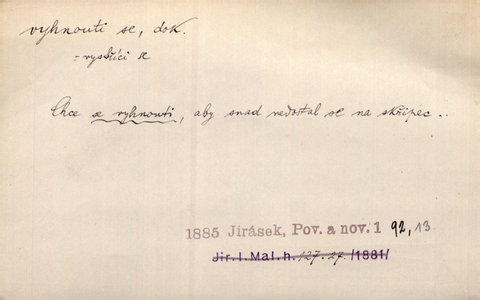 vyhnouti se, dok.
= vystříci se
Chce se vyhnouti, aby snad nedostal se na skřipec..
1885 Jirásek, Pov. a nov. 1 92, 13
Jir. I. Mal. h. 127. 27 /1881/